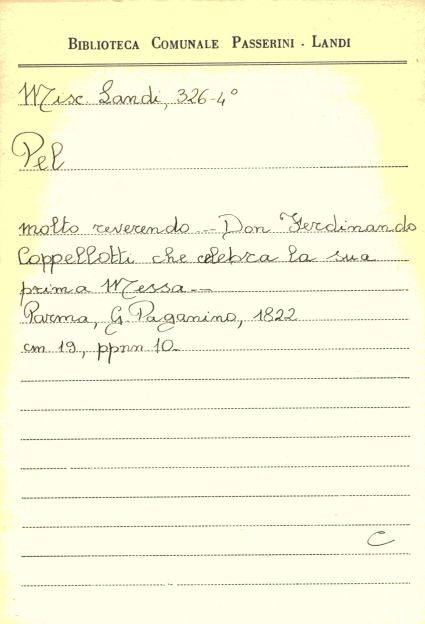 BIBLIOTECA COMUNALE PASSERINI - LANDI
Misc. Landi, 326-4°
Pel
molto reverendo ... Don Ferdinando
Coppellotti che celebra la sua
prima Messa ...
Parma, G. Paganino, 1822
cm 19, ppnn 10
C